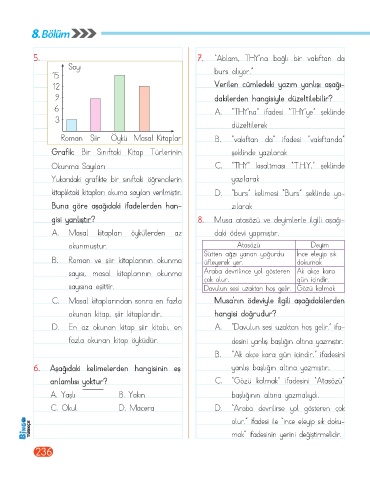 8.Bölüm
5.
Sayı
15
12
9
6
3
Roman Şiir Öykü Masal Kitaplar
Grafik: Bir Sınıftaki Kitap Türlerinin
Okunma Sayıları
Yukarıdaki grafikte bir sınıftaki öğrencilerin
kitaplıktaki kitapları okuma sayıları verilmiştir.
Buna göre aşağıdaki ifadelerden han-
gisi yanlıştır?
A. Masal kitapları öykülerden az
okunmuştur.
B. Roman ve şiir kitaplarının okunma
sayısı, masal kitaplarının okunma
sayısına eşittir.
C. Masal kitaplarından sonra en fazla
okunan kitap, şiir kitaplarıdır.
D. En az okunan kitap şiir kitabı, en
fazla okunan kitap öyküdür.
6. Aşağıdaki kelimelerden hangisinin eş
anlamlısı yoktur?
A. Yaşlı B. Yakın
C. Okul D. Macera
7. "Ablam, THY'na bağlı bir vakıftan da
burs alıyor."
Verilen cümledeki yazım yanlışı aşağı-
dakilerden hangisiyle düzeltilebilir?
A. "THY'na" ifadesi "THY'ye" şeklinde
düzeltilerek
B. "vakıftan da" ifadesi "vakıftanda"
şeklinde yazılarak
C. "THY" kısaltması "T.H.Y." şeklinde
yazılarak
D. "burs" kelimesi "Burs" şeklinde ya-
zılarak
8. Musa atasözü ve deyimlerle ilgili aşağı-
daki ödevi yapmıştır.
Atasözü Deyim
Sütten ağzı yanan yoğurdu üfleyerek yer. İnce eleyip sık dokumak
Araba devrilince yol gösteren çok olur. Ak akçe kara gün içindir.
Davulun sesi uzaktan hoş gelir. Gözü kalmak
Musa'nın ödeviyle ilgili aşağıdakilerden
hangisi doğrudur?
A. "Davulun sesi uzaktan hoş gelir." ifa-
desini yanlış başlığın altına yazmıştır.
B. "Ak akçe kara gün içindir." ifadesini
yanlış başlığın altına yazmıştır.
C. "Gözü kalmak" ifadesini "Atasözü"
başlığının altına yazmalıydı.
D. "Araba devrilirse yol gösteren çok
olur." ifadesi ile "ince eleyip sık doku-
mak" ifadesinin yerini değiştirmelidir.
BinGo
TÜRKÇE
236